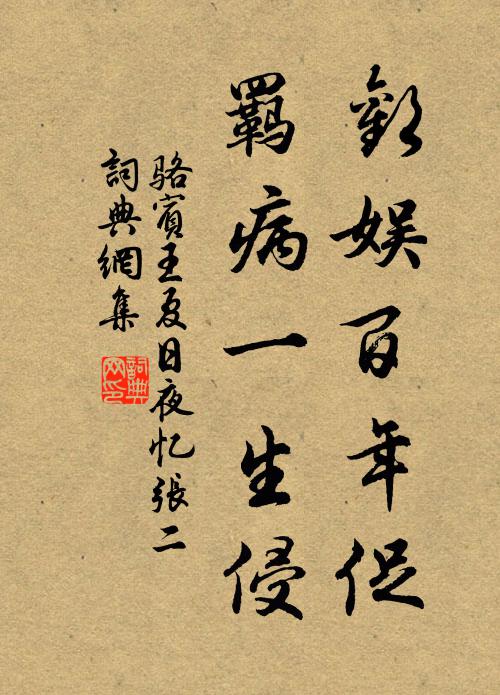 歡娛百年促
羈病一生侵
駱賓王夏日夜忆張二
詞典網集
詞典
网印